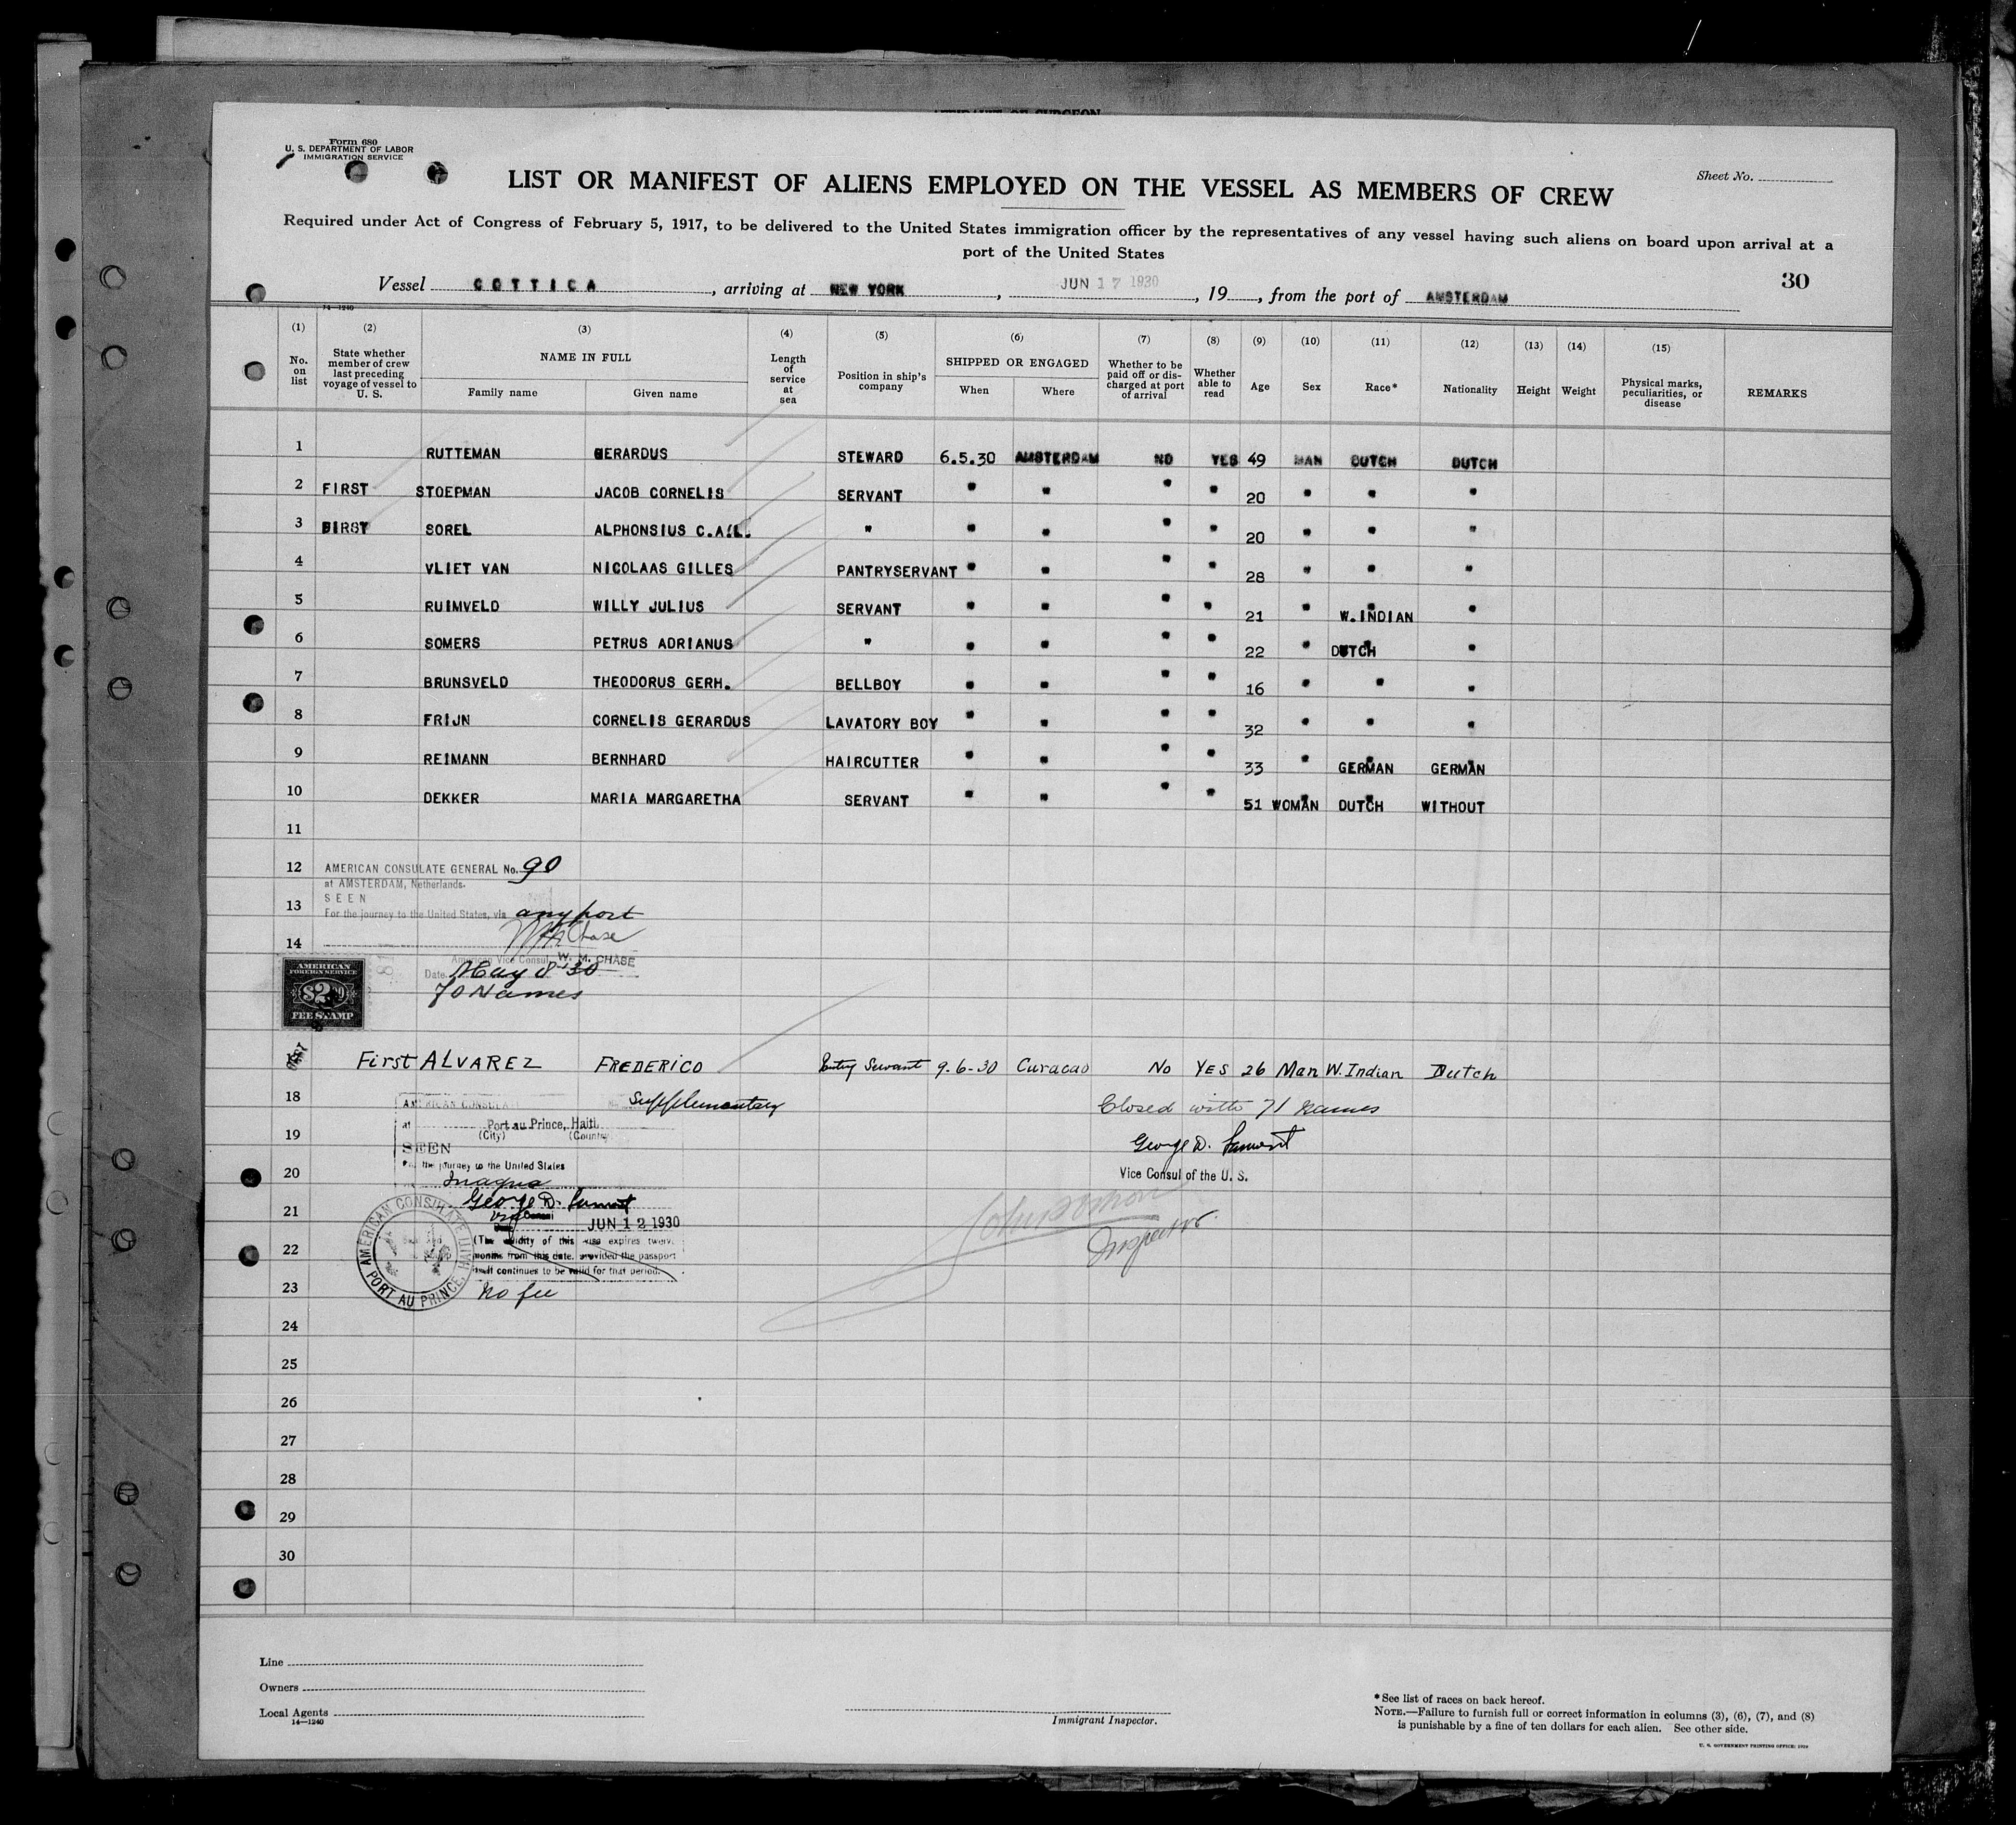 Form 680
U. S. DEPARTMENT OF LABOR
IMMIGRATION SERVICE
LIST OR MANIFEST OF ALIENS EMPLOYED ON THE VESSEL AS MEMBERS OF CREW
Sheet No.
Required under Act of Congress of February 5, 1917, to be delivered to the United States immigration officer by the representatives of any vessel having such aliens on board upon arrival at a
port of the United States
30
Vessel COTTICA, arriving at NEW YORK, JUN 17 1930, 19 , from the port of AMSTERDAM
14—1240
(1) (2) (3) (4) (5) (6) (7) (8) (9) (10) (11) (12) (13) (14) (15)
No. on list
State whether member of crew last preceding voyage of vessel to U. S.
NAME IN FULL
Family name
Given name
Length of service at sea
Position in ship's company
SHIPPED OR ENGAGED
When
Where
Whether to be paid off or discharged at port of arrival
Whether able to read
Age
Sex
Race*
Nationality
Height
Weight
Physical marks, peculiarities, or disease
REMARKS
1 RUTTEMAN GERARDUS STEWARD 6.5.30 AMSTERDAM NO YES 49 MAN DUTCH DUTCH
2 FIRST STOEPMAN JACOB CORNELIS SERVANT " " " " 20 " " "
3 FIRST SOREL ALPHONSIUS C.A.L. " " " " " 20 " " "
4 VLIET VAN NICOLAAS GILLES PANTRYSERVANT " " " " 28 " " "
5 RUIMVELD WILLY JULIUS SERVANT " " " " 21 " W.INDIAN "
6 SOMERS PETRUS ADRIANUS " " " " " 22 " DUTCH "
7 BRUNSVELD THEODORUS GERH. BELLBOY " " " " 16 " " "
8 FRIJN CORNELIS GERARDUS LAVATORY BOY " " " " 32 " " "
9 REIMANN BERNHARD HAIRCUTTER " " " " 33 " GERMAN GERMAN
10 DEKKER MARIA MARGARETHA SERVANT " " " " 51 WOMAN DUTCH WITHOUT
11
12 AMERICAN CONSULATE GENERAL No. 90
at AMSTERDAM, Netherlands.
SEEN
13 For the journey to the United States, via any port
14 W M Chase
American Vice Consul. W. M. CHASE
Date. May 8 - 30
70 Names
AMERICAN
FOREIGN SERVICE
$2.00
FEE STAMP
First ALVAREZ FREDERICO Pantry Servant 9.6-30 Curacao No YES 26 Man W.Indian Dutch
18 AMERICAN CONSULATE Supplementary
Closed with 71 names
at Port au Prince, Haiti.
(City) (Country)
19 SEEN
George D.
For the journey to the United States
Vice Consul of the U. S.
20 Inagua
George D.
21 JUN 12 1930
Inspector.
22 (The validity of this visa expires twelve
months from this date, provided the passport
itself continues to be valid for that period.)
AMERICAN CONSULATE
PORT AU PRINCE, HAITI
23 No fee
24
25
26
27
28
29
30
Line
Owners
Local Agents
14—1240
Immigrant Inspector.
*See list of races on back hereof.
NOTE.—Failure to furnish full or correct information in columns (3), (6), (7), and (8)
is punishable by a fine of ten dollars for each alien. See other side.
U. S. GOVERNMENT PRINTING OFFICE: